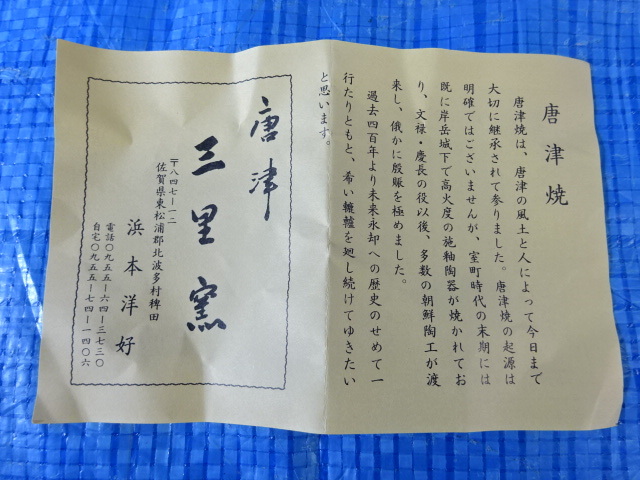 唐津焼
唐津焼は、唐津の風土と人によって今日まで
大切に継承されて参りました。唐津焼の起源は
明確ではございませんが、室町時代の末期には
既に岸岳城下で高火度の施釉陶器が焼かれてお
り、文禄・慶長の役以後、多数の朝鮮陶工が渡
来し、俄かに殷賑を極めました。
過去四百年より未来永却への歴史のせめて一
行たりともと、希い轆轤を廻し続けてゆきたい
と思います。
唐津
三里窯
〒八四七ー一二
佐賀県東松浦郡北波多村稗田
浜本洋好
電話〇九五五ー六四ー三七三〇
自宅〇九五五ー七四ー一四〇六